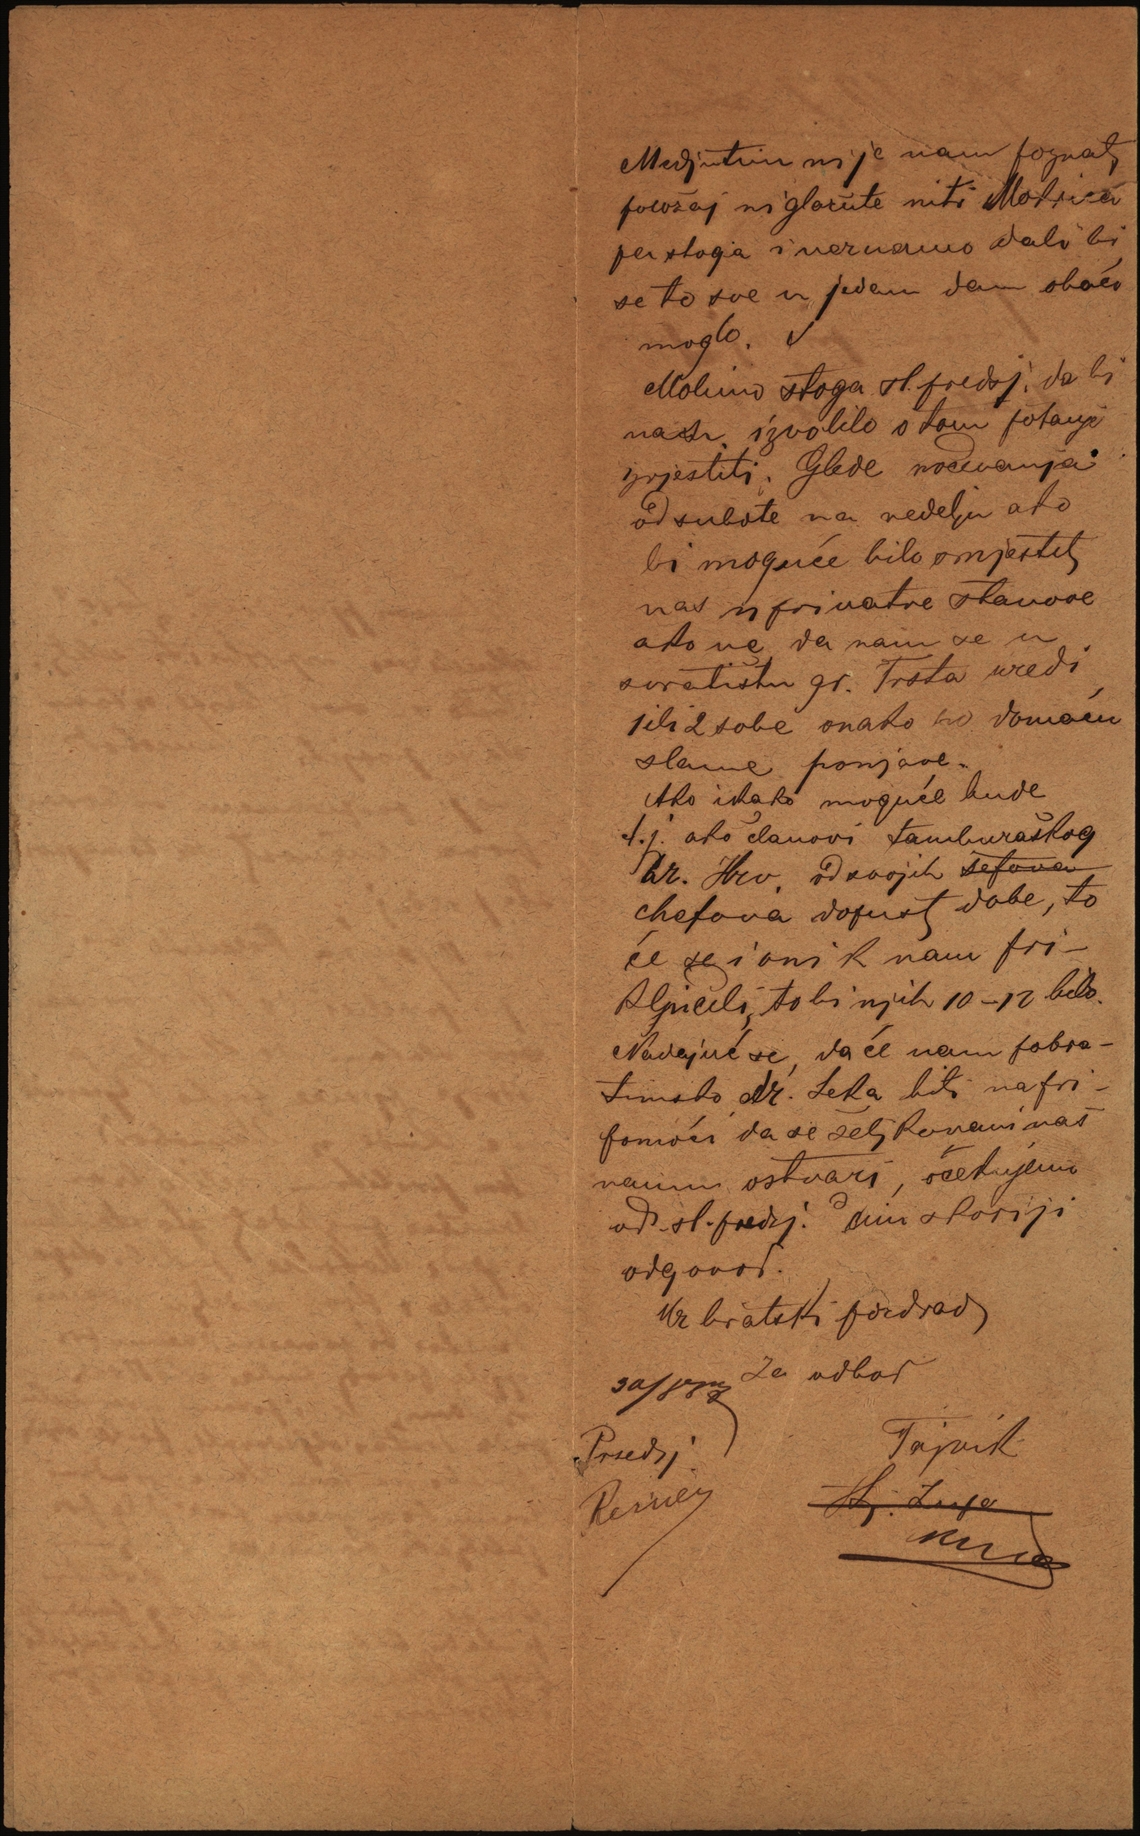 Medjutim nije nam poznat
položaj ni glazute niti Mokrica
per stoga i neznamo dali bi
se to sve u jedam dan obaći
moglo.
Molimo stoga sl. predsj. da bi
nas izvolilo o tom potanje
izvjestiti. Glede noćevanja
od subote na nedelju ako
bi moguće bilo smjestit
nas u privatne stanove
ako ne da nam se u
svratištu gr. Trsta uredi
1 ili 2 sobe onako po domaću
slame ponjave.
Ako ikako moguće bude
t.j. ako članovi tamburaškog
dr. Hrv. od svojih šefova
chefova dopust dobe, to
će se i oni k nam pri-
ključili, to bi njih 10-12 bilo.
Nadajuć se, da će nam pobra-
timsko dr. Seka biti na pri-
pomoći da se želj kovani naš
naum ostvari, očekujemo
od sl. predsj. čim skoriji
odgovor.
Uz bratski pozdrav
Za odbor
Predsj. Tajnik